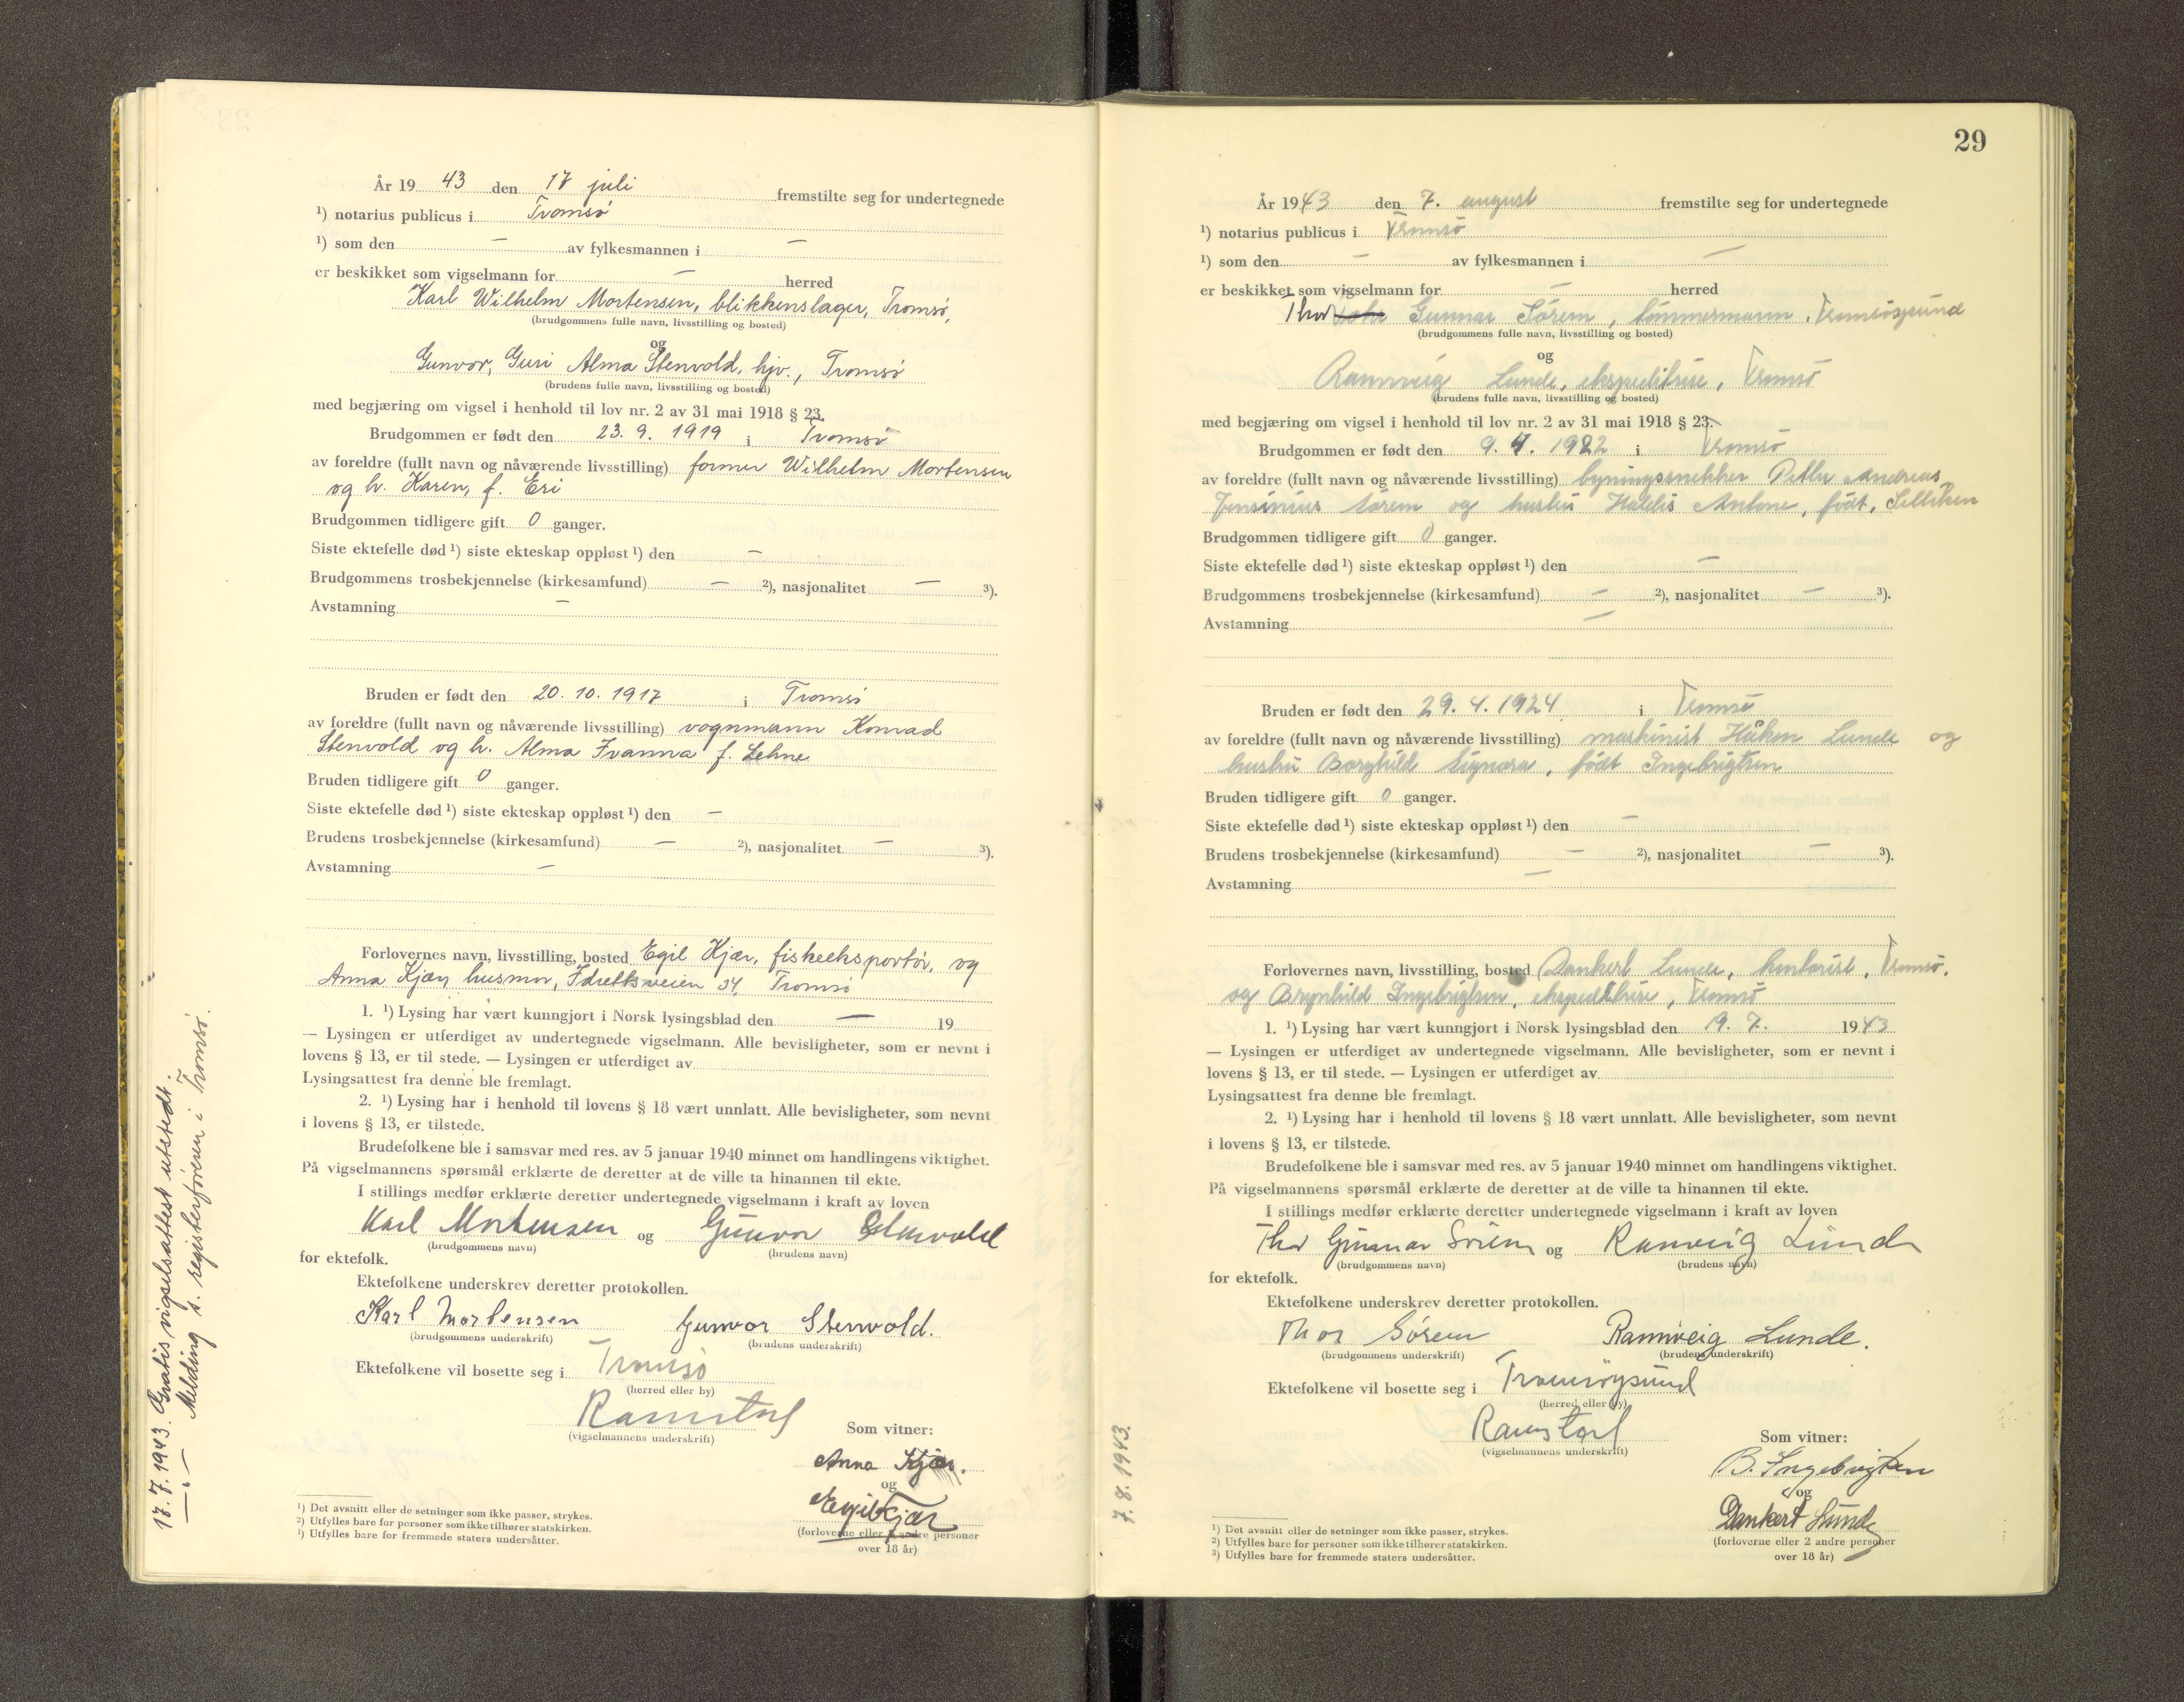 År 19 43 den 17 juli fremstilte seg for undertegnede
¹) notarius publicus i Tromsø
¹) som den — av fylkesmannen i —
er beskikket som vigselmann for — herred
Karl Wilhelm Mortensen, blikkenslager, Tromsø,
(brudgommens fulle navn, livsstilling og bosted)
og
Gunvor, Guri Alma Stenvold, hjv., Tromsø
(brudens fulle navn, livsstilling og bosted)
med begjæring om vigsel i henhold til lov nr. 2 av 31 mai 1918 § 23.
Brudgommen er født den 23. 9. 1919 i Tromsø
av foreldre (fullt navn og nåværende livsstilling) former Wilhelm Mortensen
og h. Karen, f. Eri
Brudgommen tidligere gift 0 ganger.
Siste ektefelle død ¹) siste ekteskap oppløst ¹) den —
Brudgommens trosbekjennelse (kirkesamfund) — ²), nasjonalitet — ³).
Avstamning —
Bruden er født den 20. 10. 1917 i Tromsø
av foreldre (fullt navn og nåværende livsstilling) vognmann Konrad
Stenvold og h. Alma Ivanna f. Lehne
Bruden tidligere gift 0 ganger.
Siste ektefelle død ¹) siste ekteskap oppløst ¹) den —
Brudens trosbekjennelse (kirkesamfund) — ²), nasjonalitet — ³).
Avstamning —
Forlovernes navn, livsstilling, bosted Egil Kjær, fiskeeksportør, og
Anna Kjær, husmor, Idrettsveien 34, Tromsø
1. ¹) Lysing har vært kunngjort i Norsk lysingsblad den — 19
— Lysingen er utferdiget av undertegnede vigselmann. Alle bevisligheter, som er nevnt i
lovens § 13, er til stede. — Lysingen er utferdiget av
Lysingsattest fra denne ble fremlagt.
2. ¹) Lysing har i henhold til lovens § 18 vært unnlatt. Alle bevisligheter, som nevnt
i lovens § 13, er tilstede.
Brudefolkene ble i samsvar med res. av 5 januar 1940 minnet om handlingens viktighet.
På vigselmannens spørsmål erklærte de deretter at de ville ta hinannen til ekte.
I stillings medfør erklærte deretter undertegnede vigselmann i kraft av loven
Karl Mortensen og Gunvor Stenvold
(brudgommens navn) (brudens navn)
for ektefolk.
Ektefolkene underskrev deretter protokollen.
Karl Mortensen Gunvor Stenvold.
(brudgommens underskrift) (brudens underskrift)
Ektefolkene vil bosette seg i Tromsø
(herred eller by)
Ramstad
(vigselmannens underskrift)
Som vitner:
Anna Kjær.
og
Egil Kjær
(forloverne eller 2 andre personer
over 18 år)
¹) Det avsnitt eller de setninger som ikke passer, strykes.
²) Utfylles bare for personer som ikke tilhører statskirken.
³) Utfylles bare for fremmede staters undersåtter.
17. 7. 1943. Gratis vigselsattest utstedt.
— " — Melding t. registerføreren i Tromsø.
29
År 19 43 den 7. august fremstilte seg for undertegnede
¹) notarius publicus i Tromsø
¹) som den — av fylkesmannen i —
er beskikket som vigselmann for — herred
Thor Gunnar Sørem, tømmermann, Tromsøysund
(brudgommens fulle navn, livsstilling og bosted)
og
Rannveig Lunde, ekspeditrise, Tromsø
(brudens fulle navn, livsstilling og bosted)
med begjæring om vigsel i henhold til lov nr. 2 av 31 mai 1918 § 23.
Brudgommen er født den 9. 4. 1922 i Tromsø
av foreldre (fullt navn og nåværende livsstilling) bygningssnekker Petter Andreas
Jensinius Sørem og hustru Haldis Antone, født
Brudgommen tidligere gift 0 ganger.
Siste ektefelle død ¹) siste ekteskap oppløst ¹) den —
Brudgommens trosbekjennelse (kirkesamfund) — ²), nasjonalitet — ³).
Avstamning —
Bruden er født den 29. 4. 1924 i Tromsø
av foreldre (fullt navn og nåværende livsstilling) maskinist Håkon Lunde og
hustru Borghild Signora, født Ingebrigtsen
Bruden tidligere gift 0 ganger.
Siste ektefelle død ¹) siste ekteskap oppløst ¹) den —
Brudens trosbekjennelse (kirkesamfund) — ²), nasjonalitet — ³).
Avstamning —
Forlovernes navn, livsstilling, bosted Dankert Lunde, kontorist, Tromsø,
og Brynhild Ingebrigtsen, ekspeditrise, Tromsø
1. ¹) Lysing har vært kunngjort i Norsk lysingsblad den 19. 7. 19 43
— Lysingen er utferdiget av undertegnede vigselmann. Alle bevisligheter, som er nevnt i
lovens § 13, er til stede. — Lysingen er utferdiget av
Lysingsattest fra denne ble fremlagt.
2. ¹) Lysing har i henhold til lovens § 18 vært unnlatt. Alle bevisligheter, som nevnt
i lovens § 13, er tilstede.
Brudefolkene ble i samsvar med res. av 5 januar 1940 minnet om handlingens viktighet.
På vigselmannens spørsmål erklærte de deretter at de ville ta hinannen til ekte.
I stillings medfør erklærte deretter undertegnede vigselmann i kraft av loven
Thor Gunnar Sörem og Ranveig Lunde
(brudgommens navn) (brudens navn)
for ektefolk.
Ektefolkene underskrev deretter protokollen.
Thor Sörem Rannveig Lunde.
(brudgommens underskrift) (brudens underskrift)
Ektefolkene vil bosette seg i Tromsöysund
(herred eller by)
Ramstad
(vigselmannens underskrift)
Som vitner:
B. Ingebrigtsen
og
Dankert Lunde
(forloverne eller 2 andre personer
over 18 år)
¹) Det avsnitt eller de setninger som ikke passer, strykes.
²) Utfylles bare for personer som ikke tilhører statskirken.
³) Utfylles bare for fremmede staters undersåtter.
7. 8. 1943.